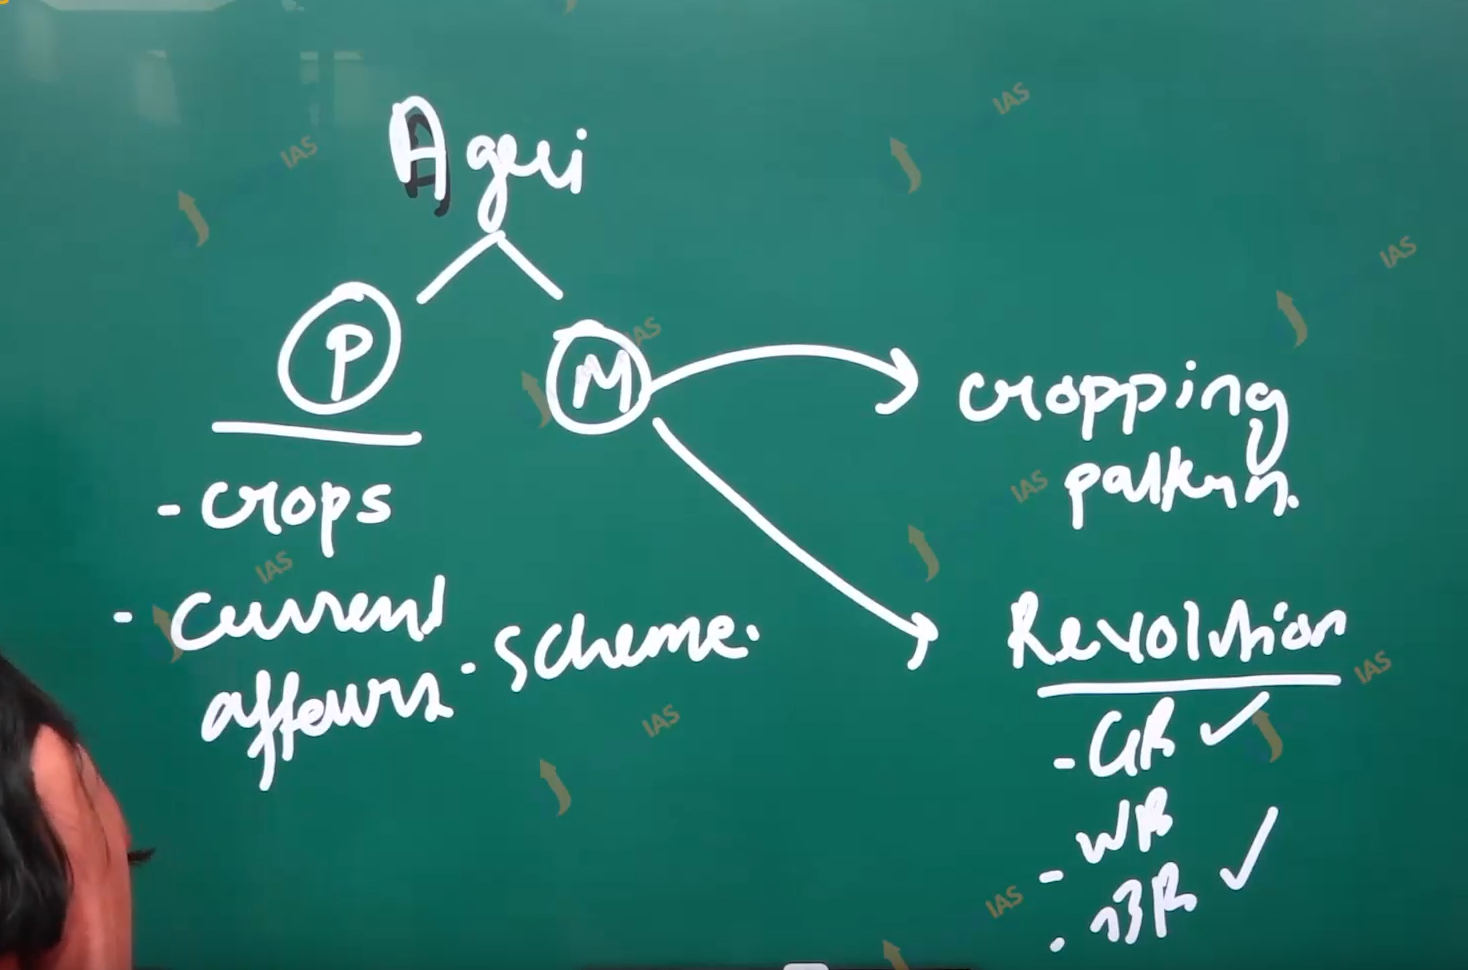 Agri
P
M
- crops
- current
affairs - scheme.
cropping
pattern.
Revolution
- GR ✓
- WR
- BR ✓
IAS
IAS
IAS
IAS
IAS
IAS
IAS
IAS
IAS